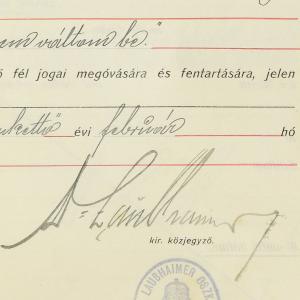 váltom be."
fél jogai megóvására és fentartására, jelen
évi február hó
kir. közjegyző.
LAUBHAIMER OSZK